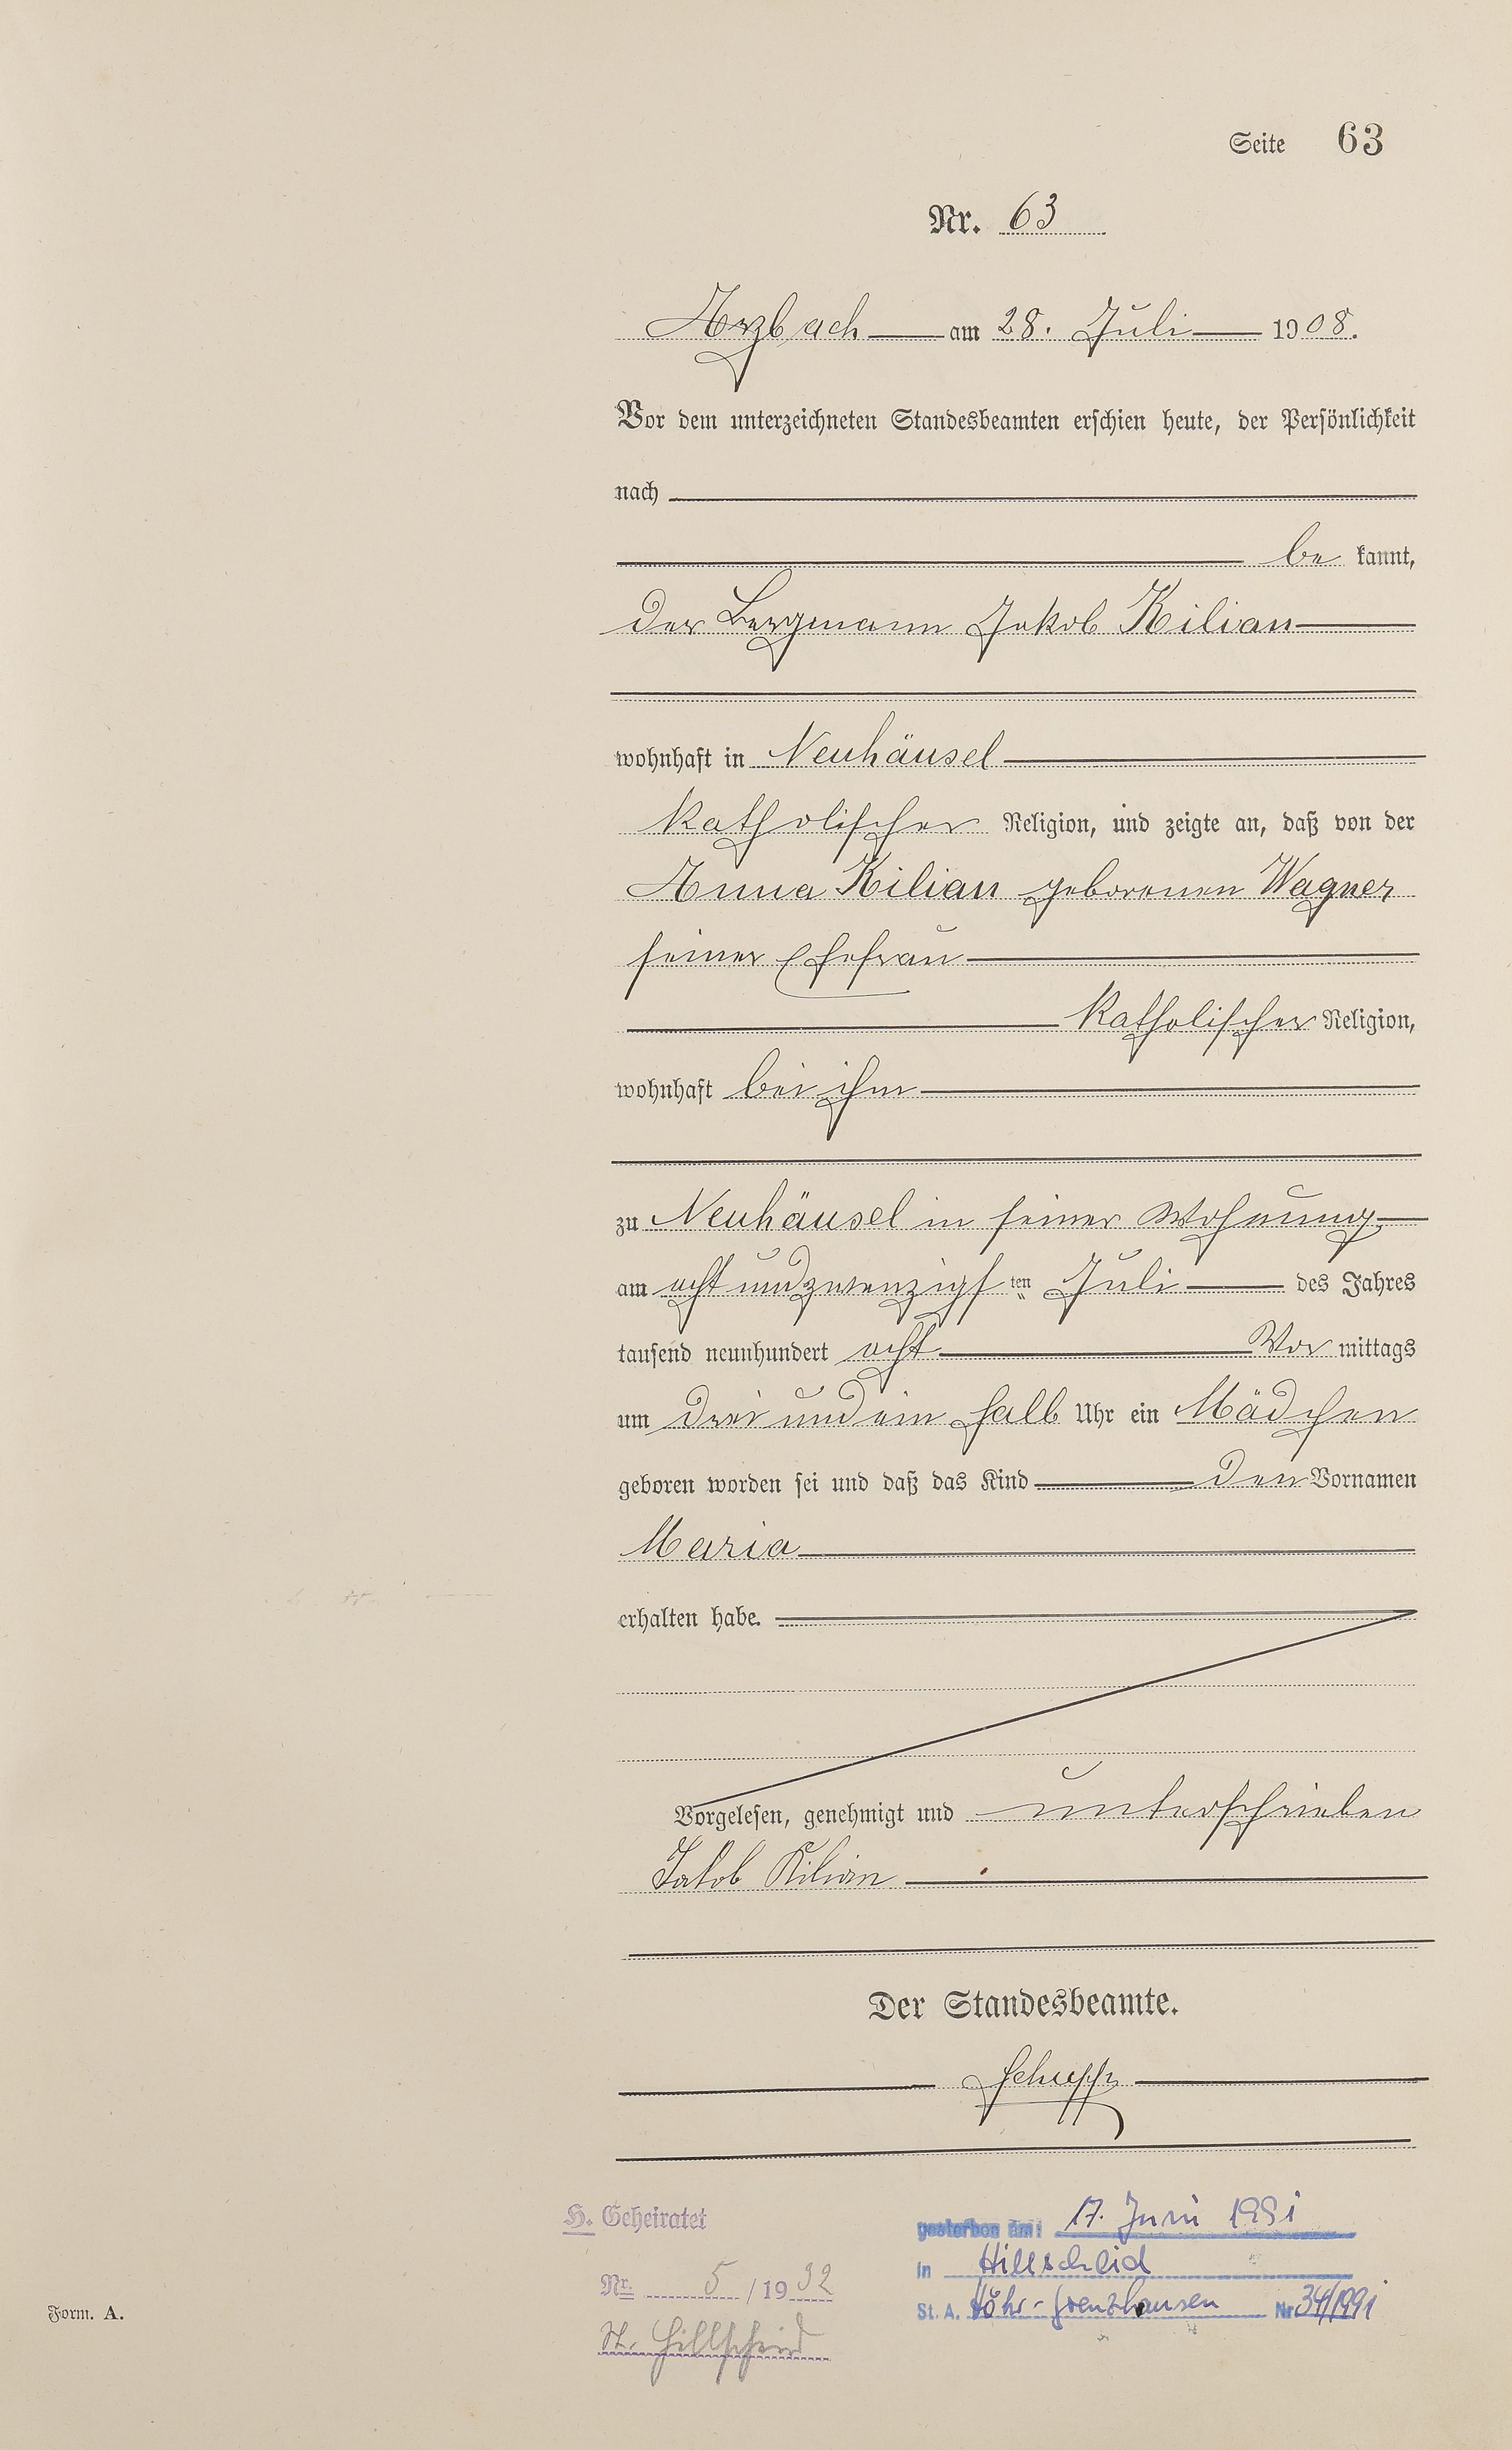 Seite 63
Nr. 63
Arzbach am 28. Juli 1908.
Vor dem unterzeichneten Standesbeamten erschien heute, der Persönlichkeit
nach
be kannt,
der Bergmann Jakob Kilian
wohnhaft in Neuhäusel
katholischer Religion, und zeigte an, daß von der
Anna Kilian geborenen Wagner,
seiner Ehefrau
katholischer Religion,
wohnhaft bei ihm
zu Neuhäusel in seiner Wohnung
am acht und zwanzigs ten Juli des Jahres
tausend neunhundert acht Vor mittags
um drei und ein halb Uhr ein Mädchen
geboren worden sei und daß das Kind den Vornamen
Maria
erhalten habe.
Vorgelesen, genehmigt und unterschrieben
Jakob Kilian
Der Standesbeamte.
Schupp
H. Geheiratet
Nr. 5 / 1932
St. Hillscheid
gestorben am: 17. Juni 1991
in Hillscheid
St. A. Höhr-Grenzhausen Nr 34/1991
Form. A.